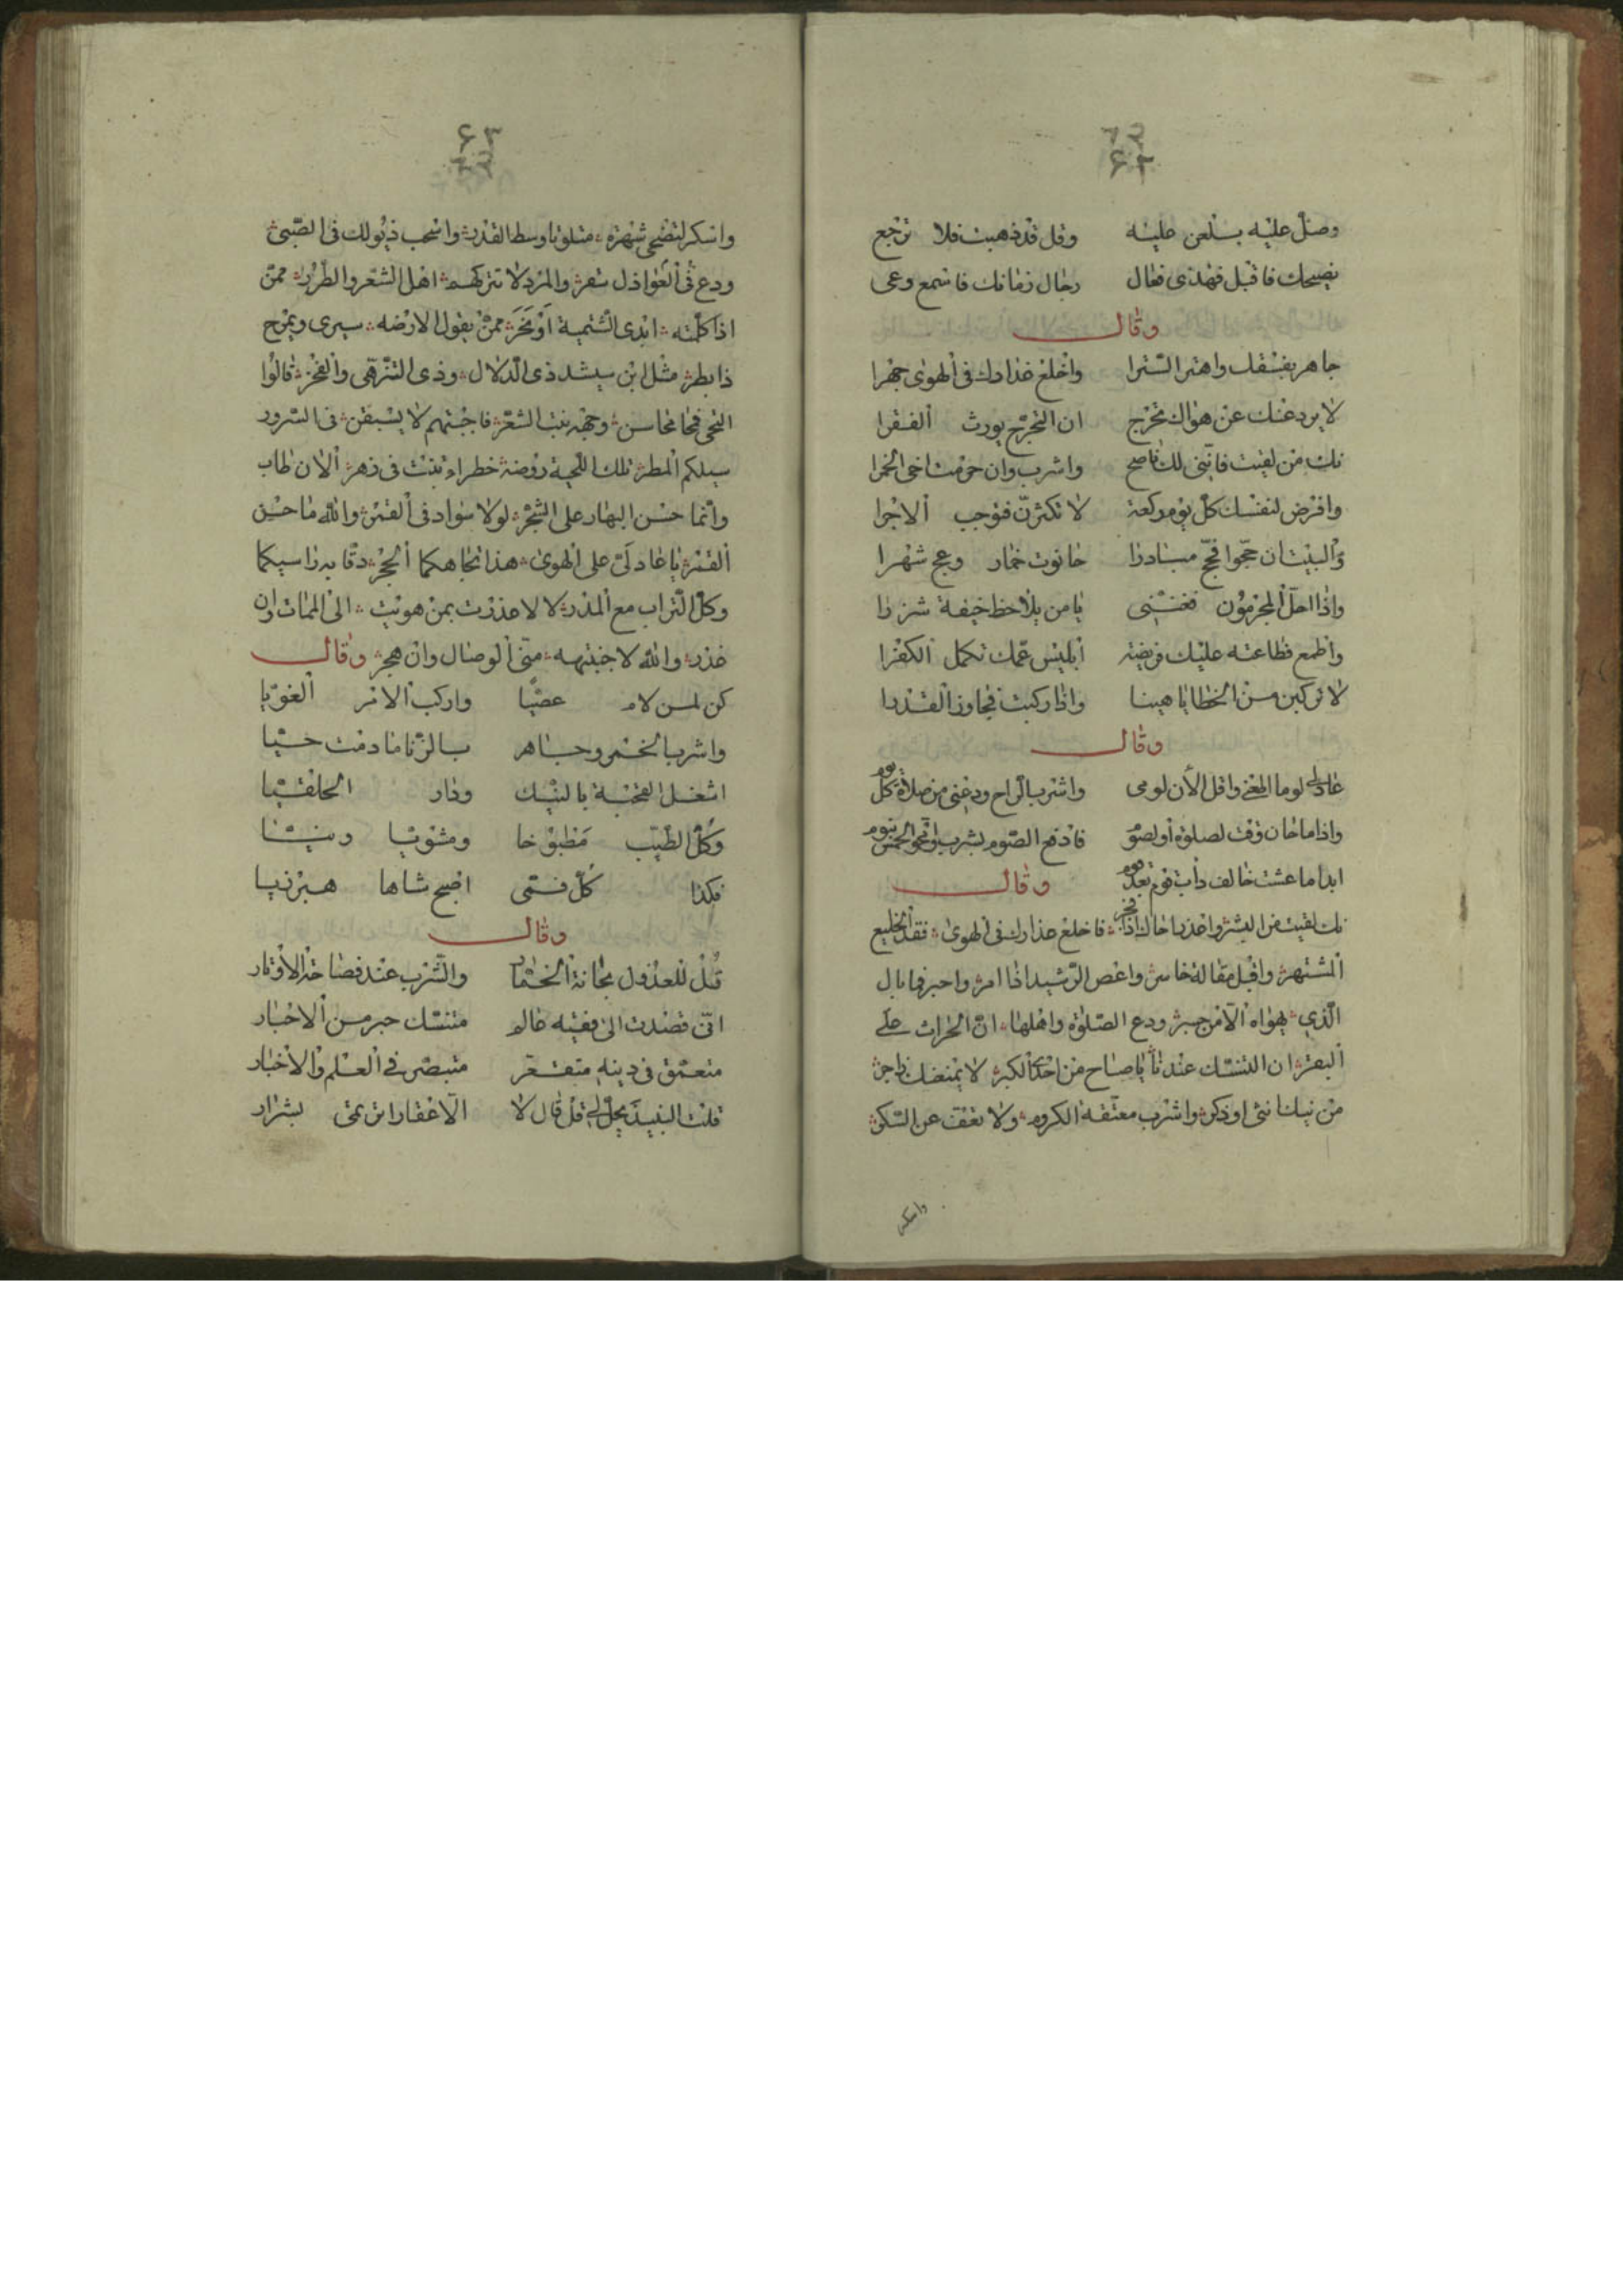 ٦٢
٦٢
وصل عليه بلعن عليه وقل قد ذهبت فلا ترجع
نصيحك فاقبل فهذى فعال رجال زمانك فاسمع وعى
وقال
جاهر بفسقك واهتر السترا واخلع عذارك فى الهوى جهرا
لا يردعنك عن هواك تحرج ان التحرج يورث الفقرا
نك من لقيت فانني لك ناصح واشرب وان حرمت اخى الخمرا
وافرض لنفسك كل يوم ركعة لا تكثرن فتوجب الاجرا
والبيت ان حجوا فحج مبادرا حانوت خمار وعج شهرا
واذا احل المجرمون يا من يلاحظ خيفة شزرا
واطمع فطاعته عليك فريضة ابليس عمك تكمل الكفرا
لا تركبن من الخطايا هينا واذا ركبت فجاوز القدرا
وقال
واقل الان لومى واشرب الراح ودعنى من صلاة كل يوم
واذا ما حان وقت لصلوة او لصوم فادفع الصوم بشرب
ابدا ما عشت خالف داب قوم بعد قوم وقال
نك لقيت من البشر واعذر اخاك اذا فاخلع عذارك فى الهوى فقد الخليع
المشتهر واقبل مقالة واعص الرشيد اذا امر
الذي يهواه الا من ودع الصلوة واهلها ان الحراث على
البقر ان التنسك عندنا يا صاح من احدى الكبر لا يمنعنك زاجر
من نيك انثى او ذكر واشرب معتقة الكروم ولا تفق عن السكر
واسكر
٦٣
٦٣
واسكر لتضحى شهرة متلوثا وسط القذر واسحب ذيولك فى الصبى
ودع العواذل والمرد لا تتركهم اهل الشعر والطرر ممن
اذا كلمته ابدى الشتيمة او نخر ممن يقول لارضه سيرى ويمرح
ذا بطر مثل ابن سيشد ذى الدلال وذى التنزهى والفخر قالوا
التحى فمحا محاسن وجهه نبت الشعر فاجبتهم لا يسبقن فى السرور
سيلكم المطر تلك اللحية روضة خطراء نبتت فى زهر الان طاب
وانما حسن البهار على الشجر لولا سواد فى القمر والله ما حسن
القمر يا عاذلى على الهوى هذا تجاهكما الحجر دقا به راسيكما
وكل التراب مع المدر لا لا غدرت بمن هويت الى الممات وان
غدر والله لا جنبته منى الوصال وان هجر وقال
كن لمن لام عصيا واركب الامر الغويا
واشرب الخمر وجاهر بالزنا ما دمت حيا
اشغل القحبة بالنيك ودار الحلقيا
وكل الطيب مطبوخا ومشويا ونيا
فكذا كل فتى اضحى شاها هبرزيا
وقال
قل للعذول بحانة الخمار والشرب عند فصاحة الاوتار
انى قصدت الى فقيه عالم متنسك حبر من الاخبار
متعمق فى دينه متفقه متبصر فى العلم والاخبار
قلت النبيذ يحل لى قل قال لا الا عقارا ترتمى بشرار